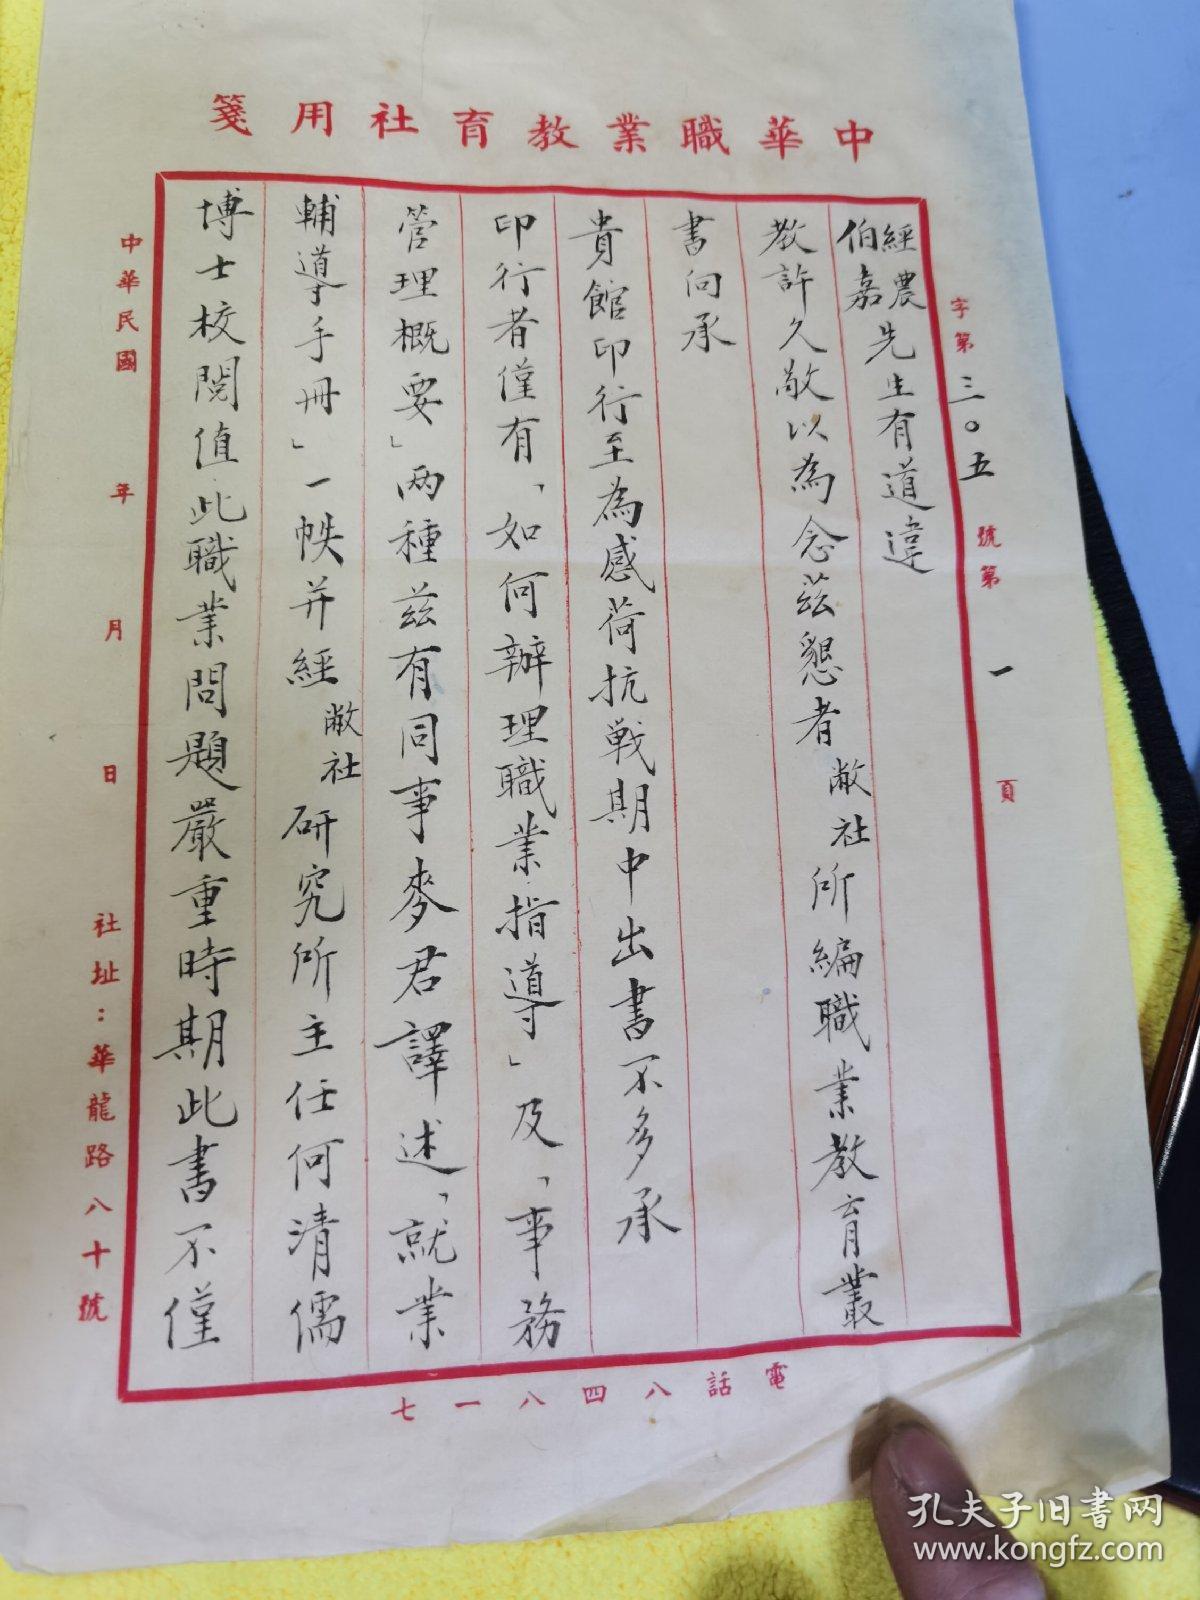 中華職業教育社用箋
字第三〇五號第一頁
經農
伯嘉
先生有道違
教許久敬以為念茲懇者敝社所編職業教育叢
書向承
貴館印行至為感荷抗戰期中出書不多承
印行者僅有「如何辦理職業指導」及「事務
管理概要」兩種茲有同事麥君譯述「就業
輔導手冊」一帙并經敝社研究所主任何清儒
博士校閱值此職業問題嚴重時期此書不僅
中華民國 年 月 日
社址：華龍路八十號
電話八四八一七
孔夫子旧书网
www.kongfz.com